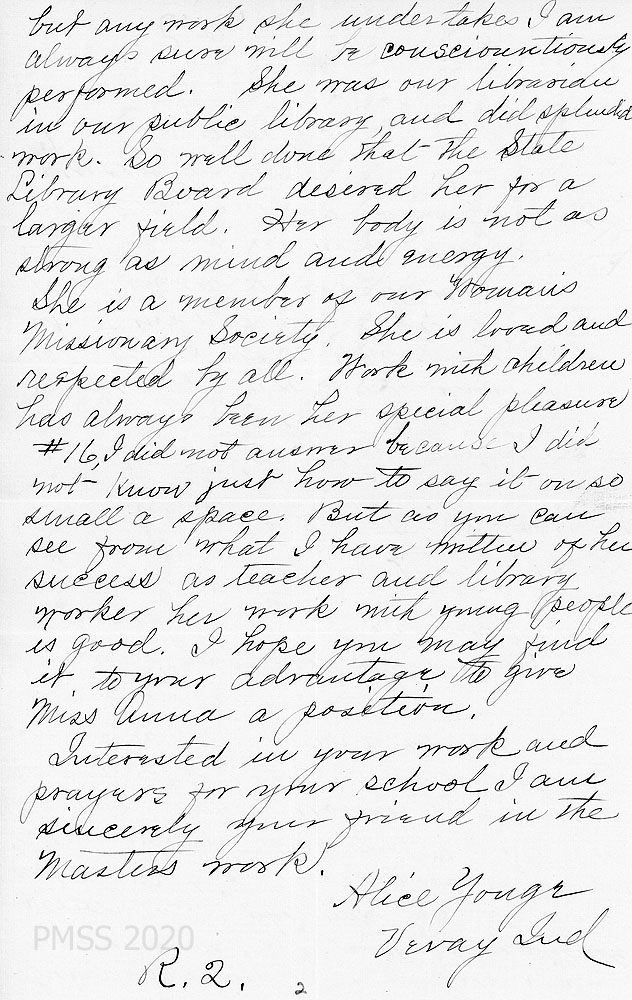 but any work she undertakes I am
always sure will be consciountiously
performed. She was our librarian
in our public library, and did splendid
work. So well done that the State
Library Board desired her for a
larger field. Her body is not as
strong as mind and energy.
She is a member of our Woman's
Missionary Society. She is loved and
respected by all. Work with children
has always been her special pleasure
#16, I did not answer because I did
not know just how to say it on so
small a space. But as you can
see from what I have written of her
success as teacher and library
worker her work with young people
is good. I hope you may find
it to your advantage to give
Miss Anna a position.
Interested in your work and
prayers for your school I am
sincerely your friend in the
Masters work.
Alice Yonge
Vevay Ind
R. 2.
2
PMSS 2020